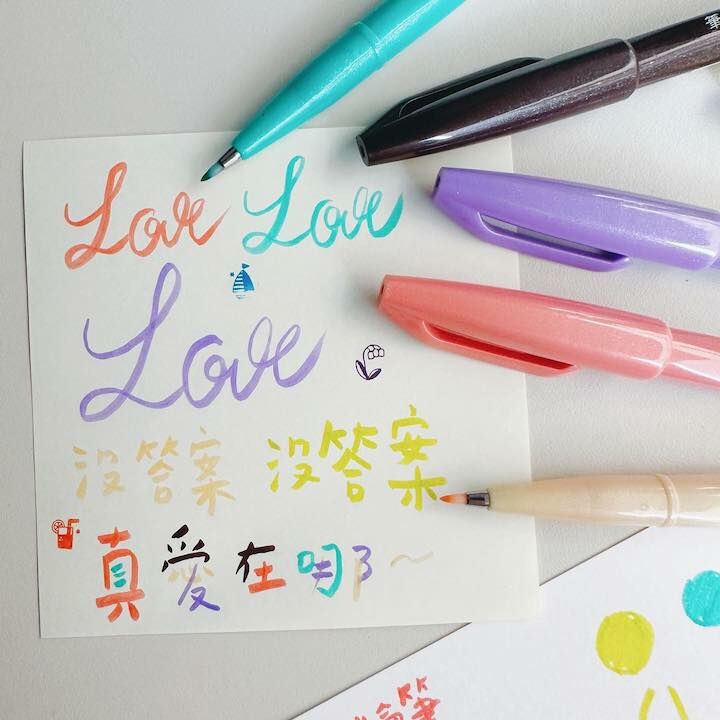 Love Love
Love
沒答案 沒答案
真愛在哪~